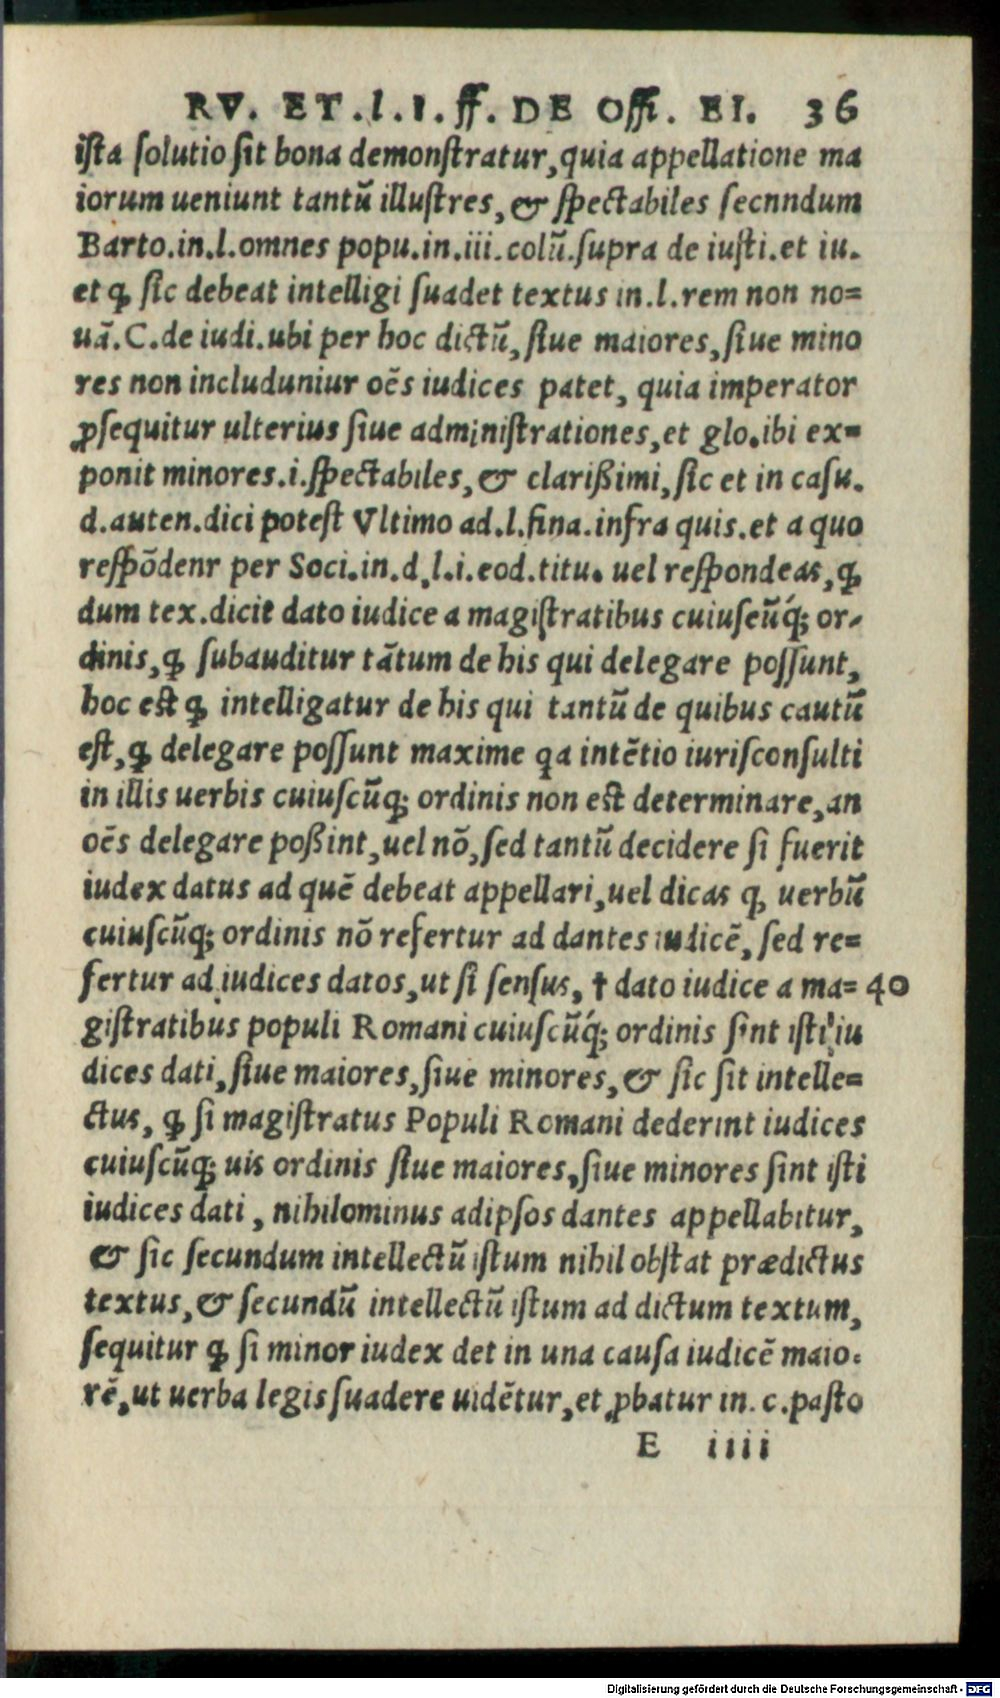 RV. ET.l.I.ff. DE Offi. EI. 36
ista solutio sit bona demonstratur, quia appellatione ma
iorum ueniunt tantũ illustres, & spectabiles secnndum
Barto.in.l.omnes popu.in.iii.colũ.supra de iusti.et iu.
et ꝙ sic debeat intelligi suadet textus in.l.rem non no=
uã.C.de iudi.ubi per hoc dictũ, siue maiores, siue mino
res non includuniur oẽs iudices patet, quia imperator
ꝓsequitur ulterius siue administrationes, et glo.ibi ex=
ponit minores.i.spectabiles, & clarißimi, sic et in casu.
d.auten.dici potest Vltimo ad.l.fina.infra quis.et a quo
respõdenr per Soci.in.d.l.i.eod.titu. uel respondeas, ꝙ
dum tex.dicit dato iudice a magistratibus cuiuseũq́; or-
dinis, ꝙ subauditur tãtum de his qui delegare possunt,
hoc est ꝙ intelligatur de his qui tantũ de quibus cautũ
est, ꝙ delegare possunt maxime qa intẽtio iurisconsulti
in illis uerbis cuiuscũq; ordinis non est determinare, an
oẽs delegare poßint, uel nõ, sed tantũ decidere si fuerit
iudex datus ad quẽ debeat appellari, uel dicas ꝙ uerbũ
cuiuscũq; ordinis nõ refertur ad dantes iudicẽ, sed re=
fertur ad iudices datos, ut si sensus, † dato iudice a ma= 40
gistratibus populi Romani cuiuscũq́; ordinis sint isti iu
dices dati, siue maiores, siue minores, & sic sit intelle=
ctus, ꝙ si magistratus Populi Romani dederint iudices
cuiuscũq; uis ordinis siue maiores, siue minores sint isti
iudices dati, nihilominus adipsos dantes appellabitur,
& sic secundum intellectũ istum nihil obstat prædictus
textus, & secundũ intellectũ istum ad dictum textum,
sequitur ꝙ si minor iudex det in una causa iudicẽ maio.
rẽ, ut uerba legis suadere uidẽtur, et ꝓbatur in. c.pasto
E iiii
Digitalisierung gefördert durch die Deutsche Forschungsgemeinschaft - DFG